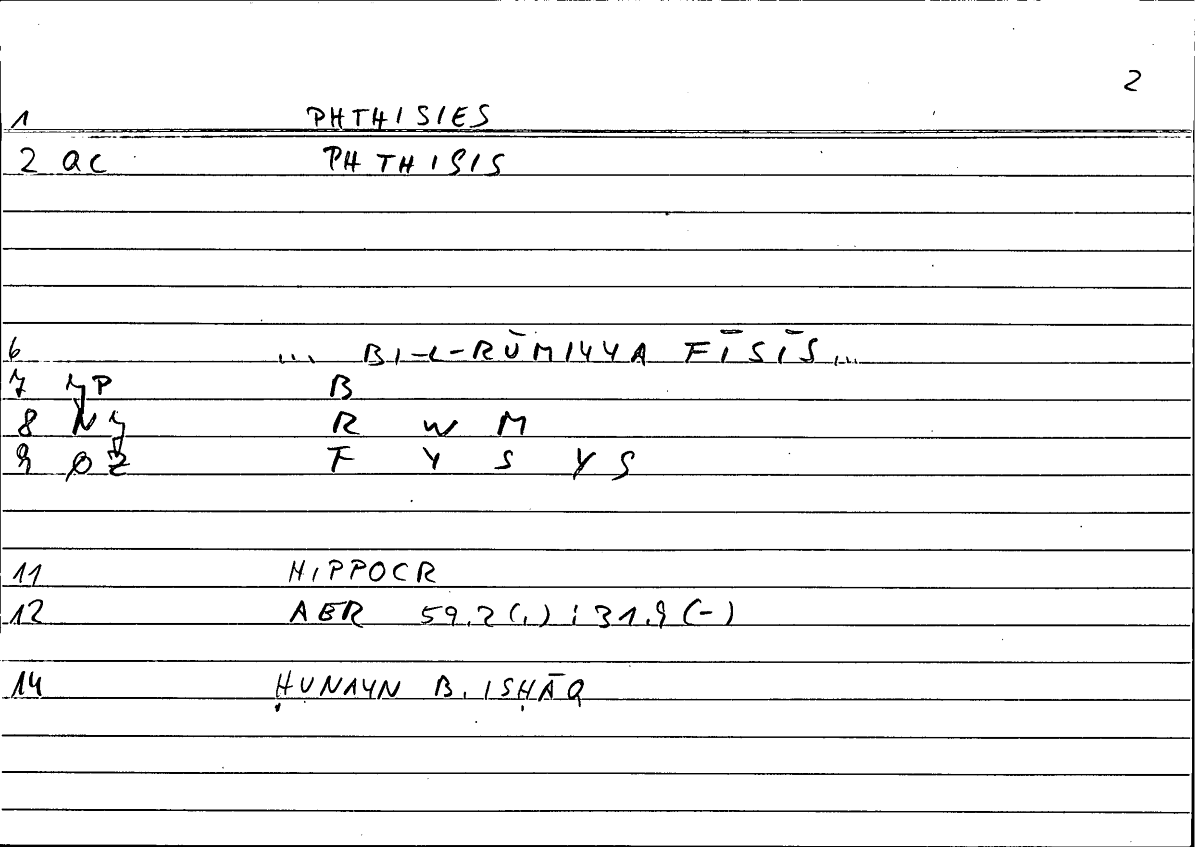 2
1 PHTHISIES
2 QC PHTHISIS
6 ... BI-L-RŪMIYYA FĪSĪS...
7 P B
8 N R W M
9 Ø Z F Y S Y S
11 HIPPOCR
12 AER 59.2(.) ; 31.9 (-)
14 ḤUNAYN B. ISḤĀQ